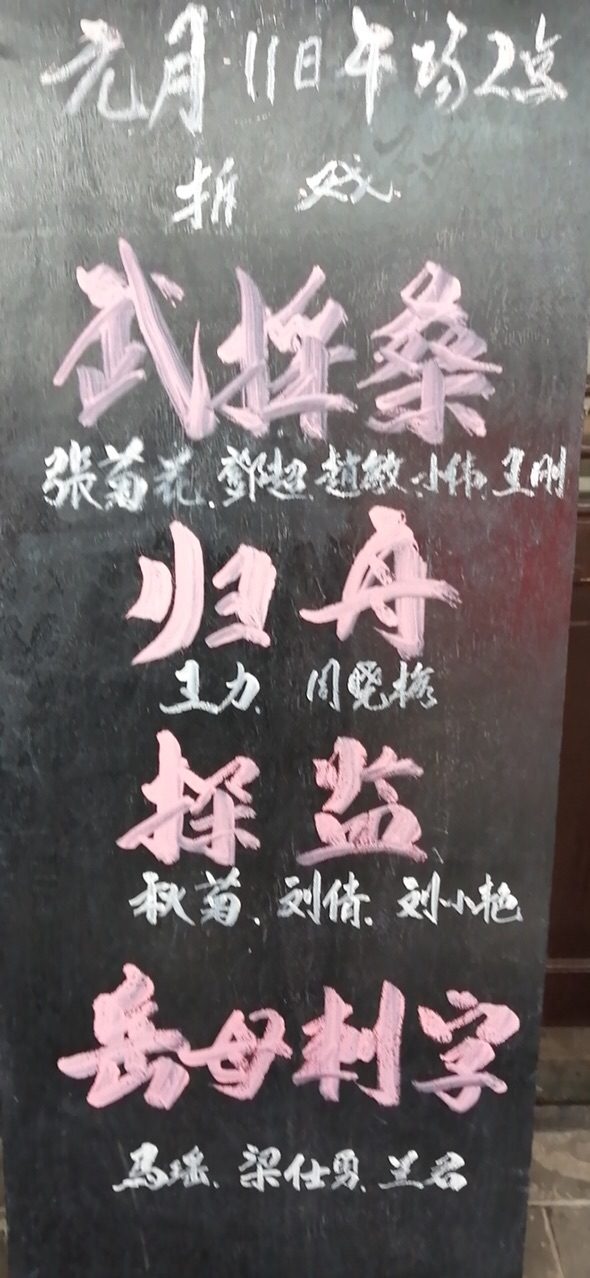 元月11日午场2点
折戏
武採桑
張菊花、鄧超、趙敏、小伟、王刚
归舟
王力、周晓梅
探监
秋菊、刘倩、刘小艳
岳母刺字
马瑶、梁仕勇、兰名